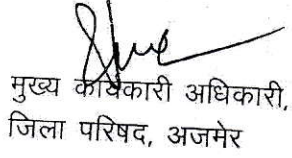 मुख्य कार्यकारी अधिकारी,
जिला परिषद, अजमेर